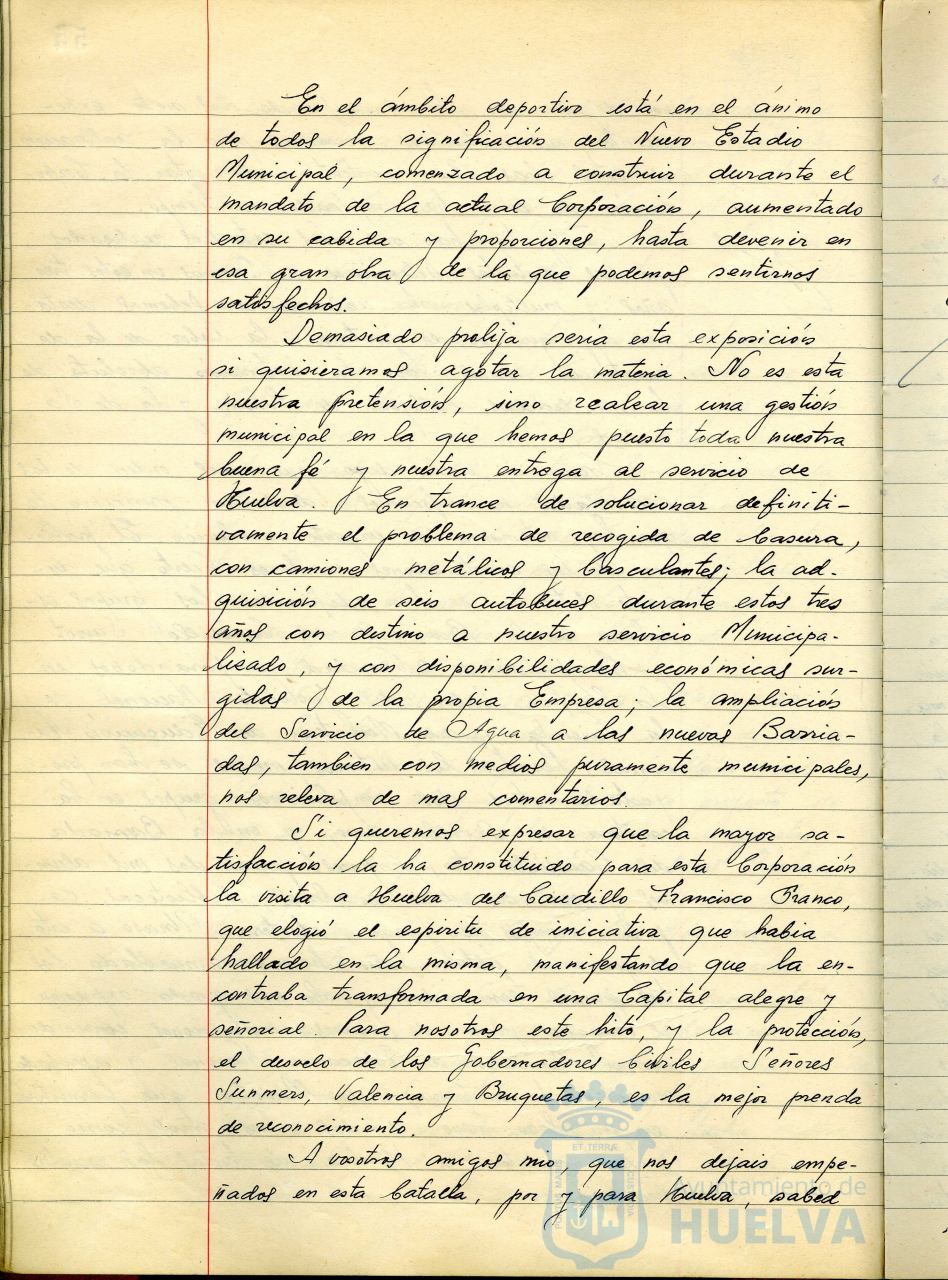 En el ámbito deportivo está en el ánimo
de todos la significación del Nuevo Estadio
Municipal, comenzado a construir durante el
mandato de la actual Corporación, aumentado
en su cabida y proporciones, hasta devenir en
esa gran obra de la que podemos sentirnos
satisfechos.
Demasiado prolija seria esta exposición
si quisieramos agotar la materia. No es esta
nuestra pretensión, sino realzar una gestión
municipal en la que hemos puesto toda nuestra
buena fé y nuestra entrega al servicio de
Huelva. En trance de solucionar definiti-
vamente el problema de recogida de basura,
con camiones metálicos y basculantes; la ad-
quisición de seis autobuces durante estos tres
años con destino a nuestro servicio Municipa-
lizado, y con disponibilidades económicas sur-
gidas de la propia Empresa; la ampliación
del Servicio de Agua a las nuevas Barria-
das, tambien con medios puramente municipales,
nos releva de mas comentarios.
Si queremos expresar que la mayor sa-
tisfacción la ha constituido para esta Corporación
la visita a Huelva del Caudillo Francisco Franco,
que elogió el espiritu de iniciativa que habia
hallado en la misma, manifestando que la en-
contraba transformada en una Capital alegre y
señorial. Para nosotros este hito, y la protección,
el desvelo de los Gobernadores Civiles Señores
Summers, Valencia y Bruquetas, es la mejor prenda
de reconocimiento.
A vosotros amigos mio, que nos dejais empe-
ñados en esta batalla, por y para Huelva, sabed
Ayuntamiento de
HUELVA